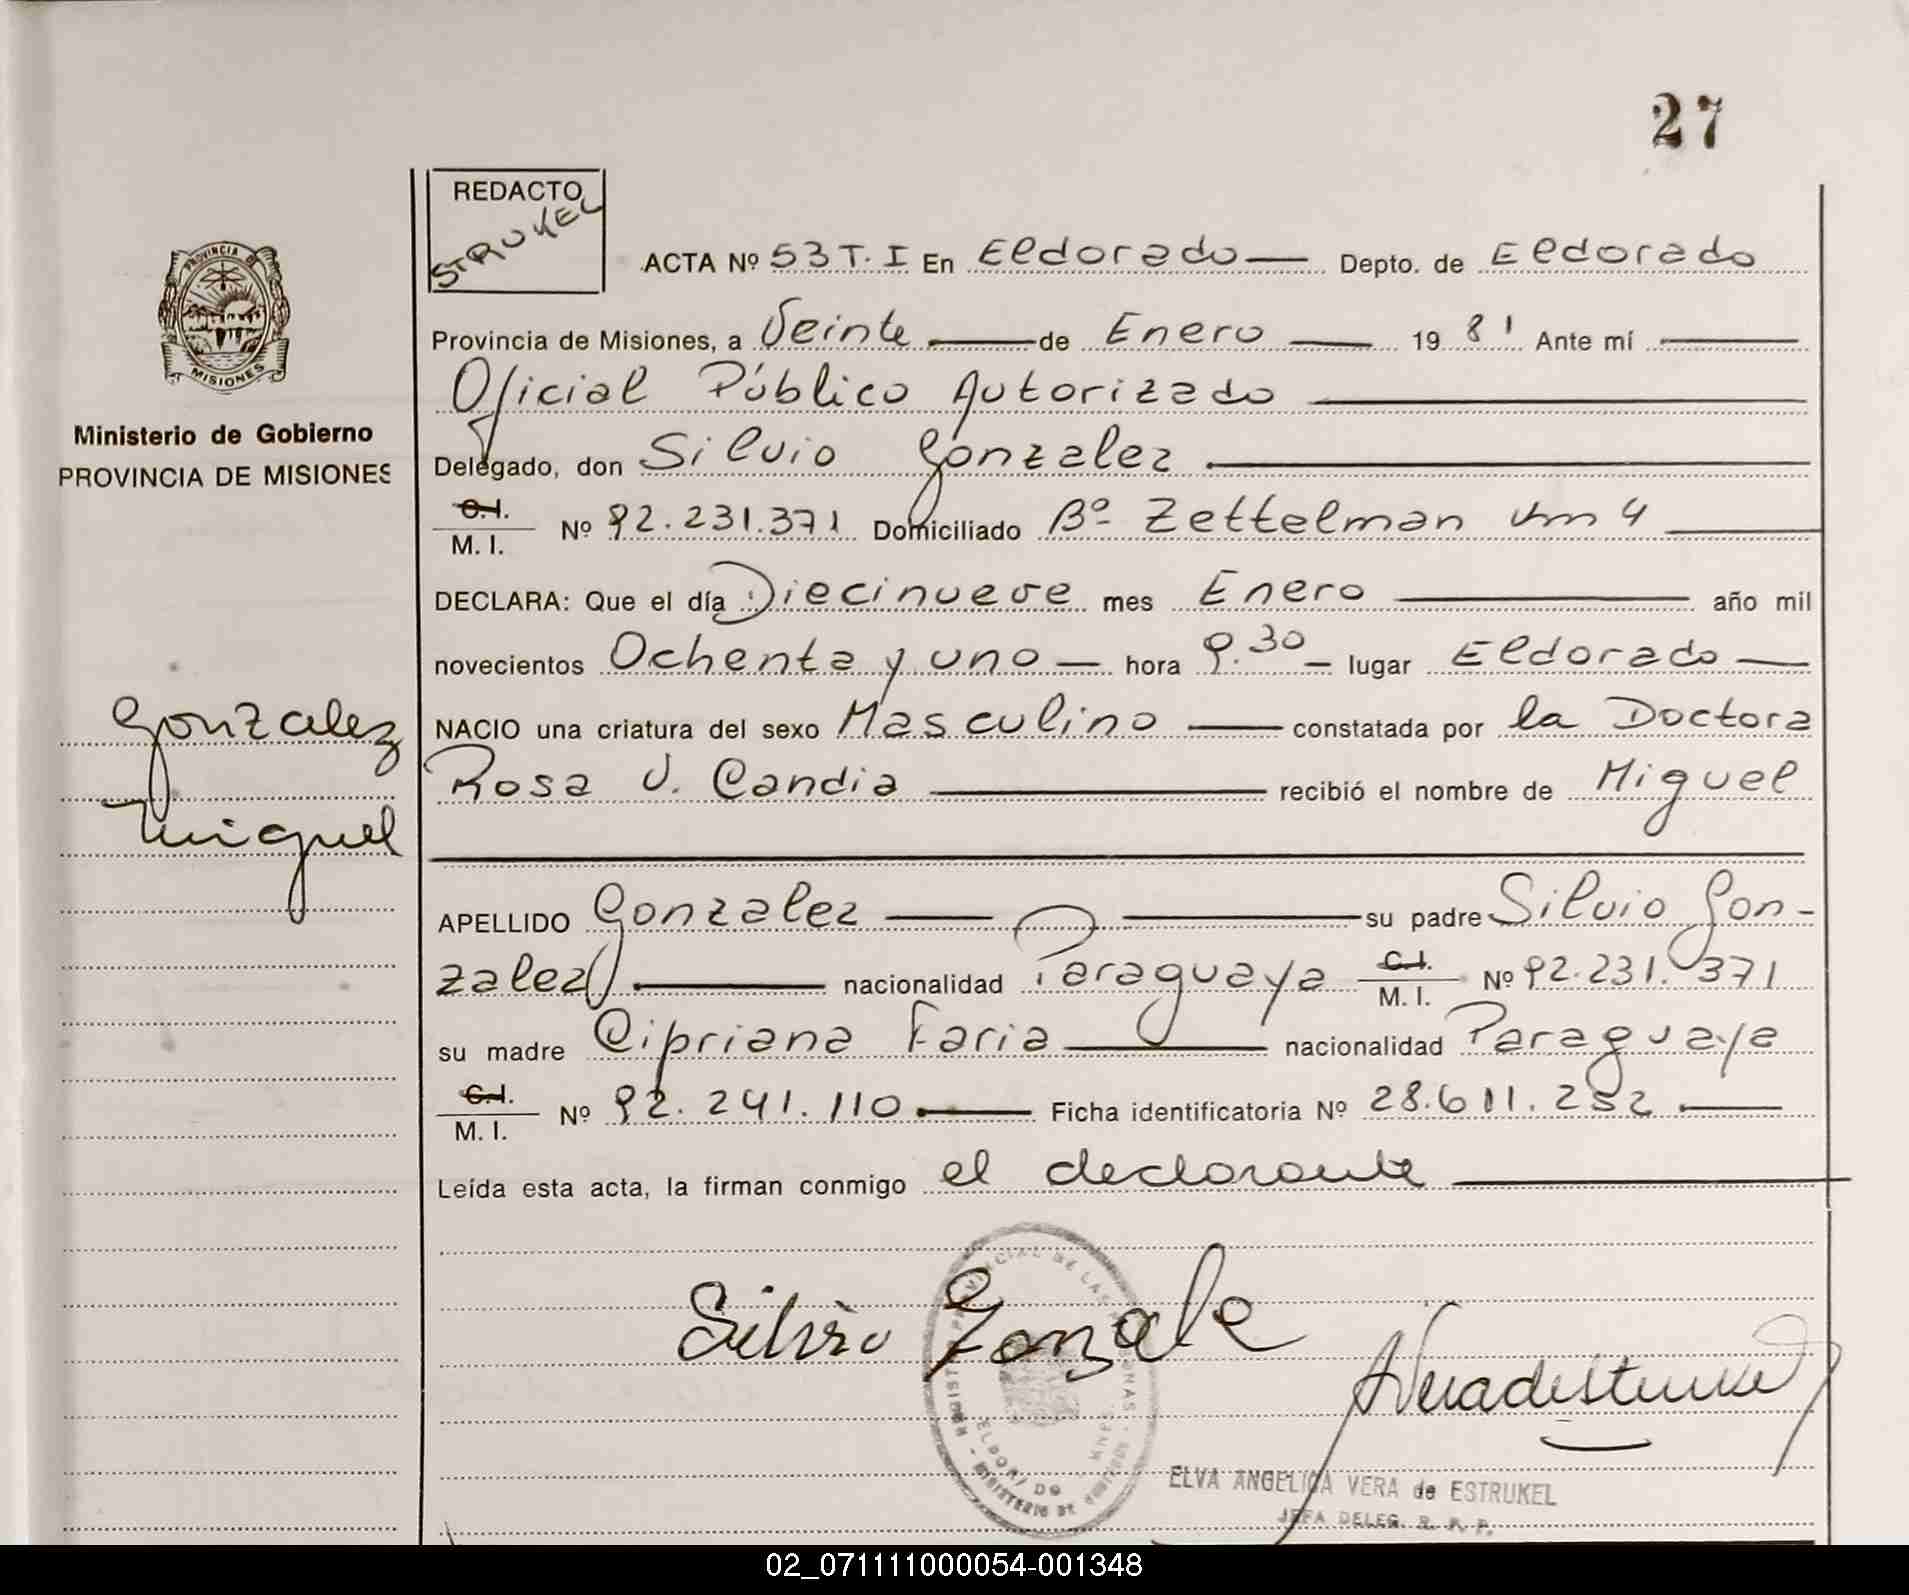 27
REDACTO
STRUKEL
ACTA Nº 53 T. I En Eldorado Depto. de Eldorado
Provincia de Misiones, a Veinte de Enero 1981 Ante mí
Oficial Público Autorizado
Delegado, don Silvio Gonzalez
C.I.
M. I. Nº 92.231.371 Domiciliado Bº Zettelman km 4
DECLARA: Que el día Diecinueve mes Enero año mil
novecientos Ochenta y uno hora 9.30 lugar Eldorado
NACIO una criatura del sexo Masculino constatada por la Doctora
Rosa V. Candia recibió el nombre de Miguel
APELLIDO Gonzalez su padre Silvio Gon-
zalez nacionalidad Paraguaya C.I. M. I. Nº 92.231.371
su madre Cipriana Faria nacionalidad Paraguaya
C.I.
M. I. Nº 92.241.110 Ficha identificatoria Nº 28.611.252
Leída esta acta, la firman conmigo el declarante
Silvio Gonzale
ELVA ANGELICA VERA de ESTRUKEL
JEFA DELEG. R. P. P.
PROVINCIA DE
MISIONES
Ministerio de Gobierno
PROVINCIA DE MISIONES
Gonzalez
Miguel
02_071111000054-001348